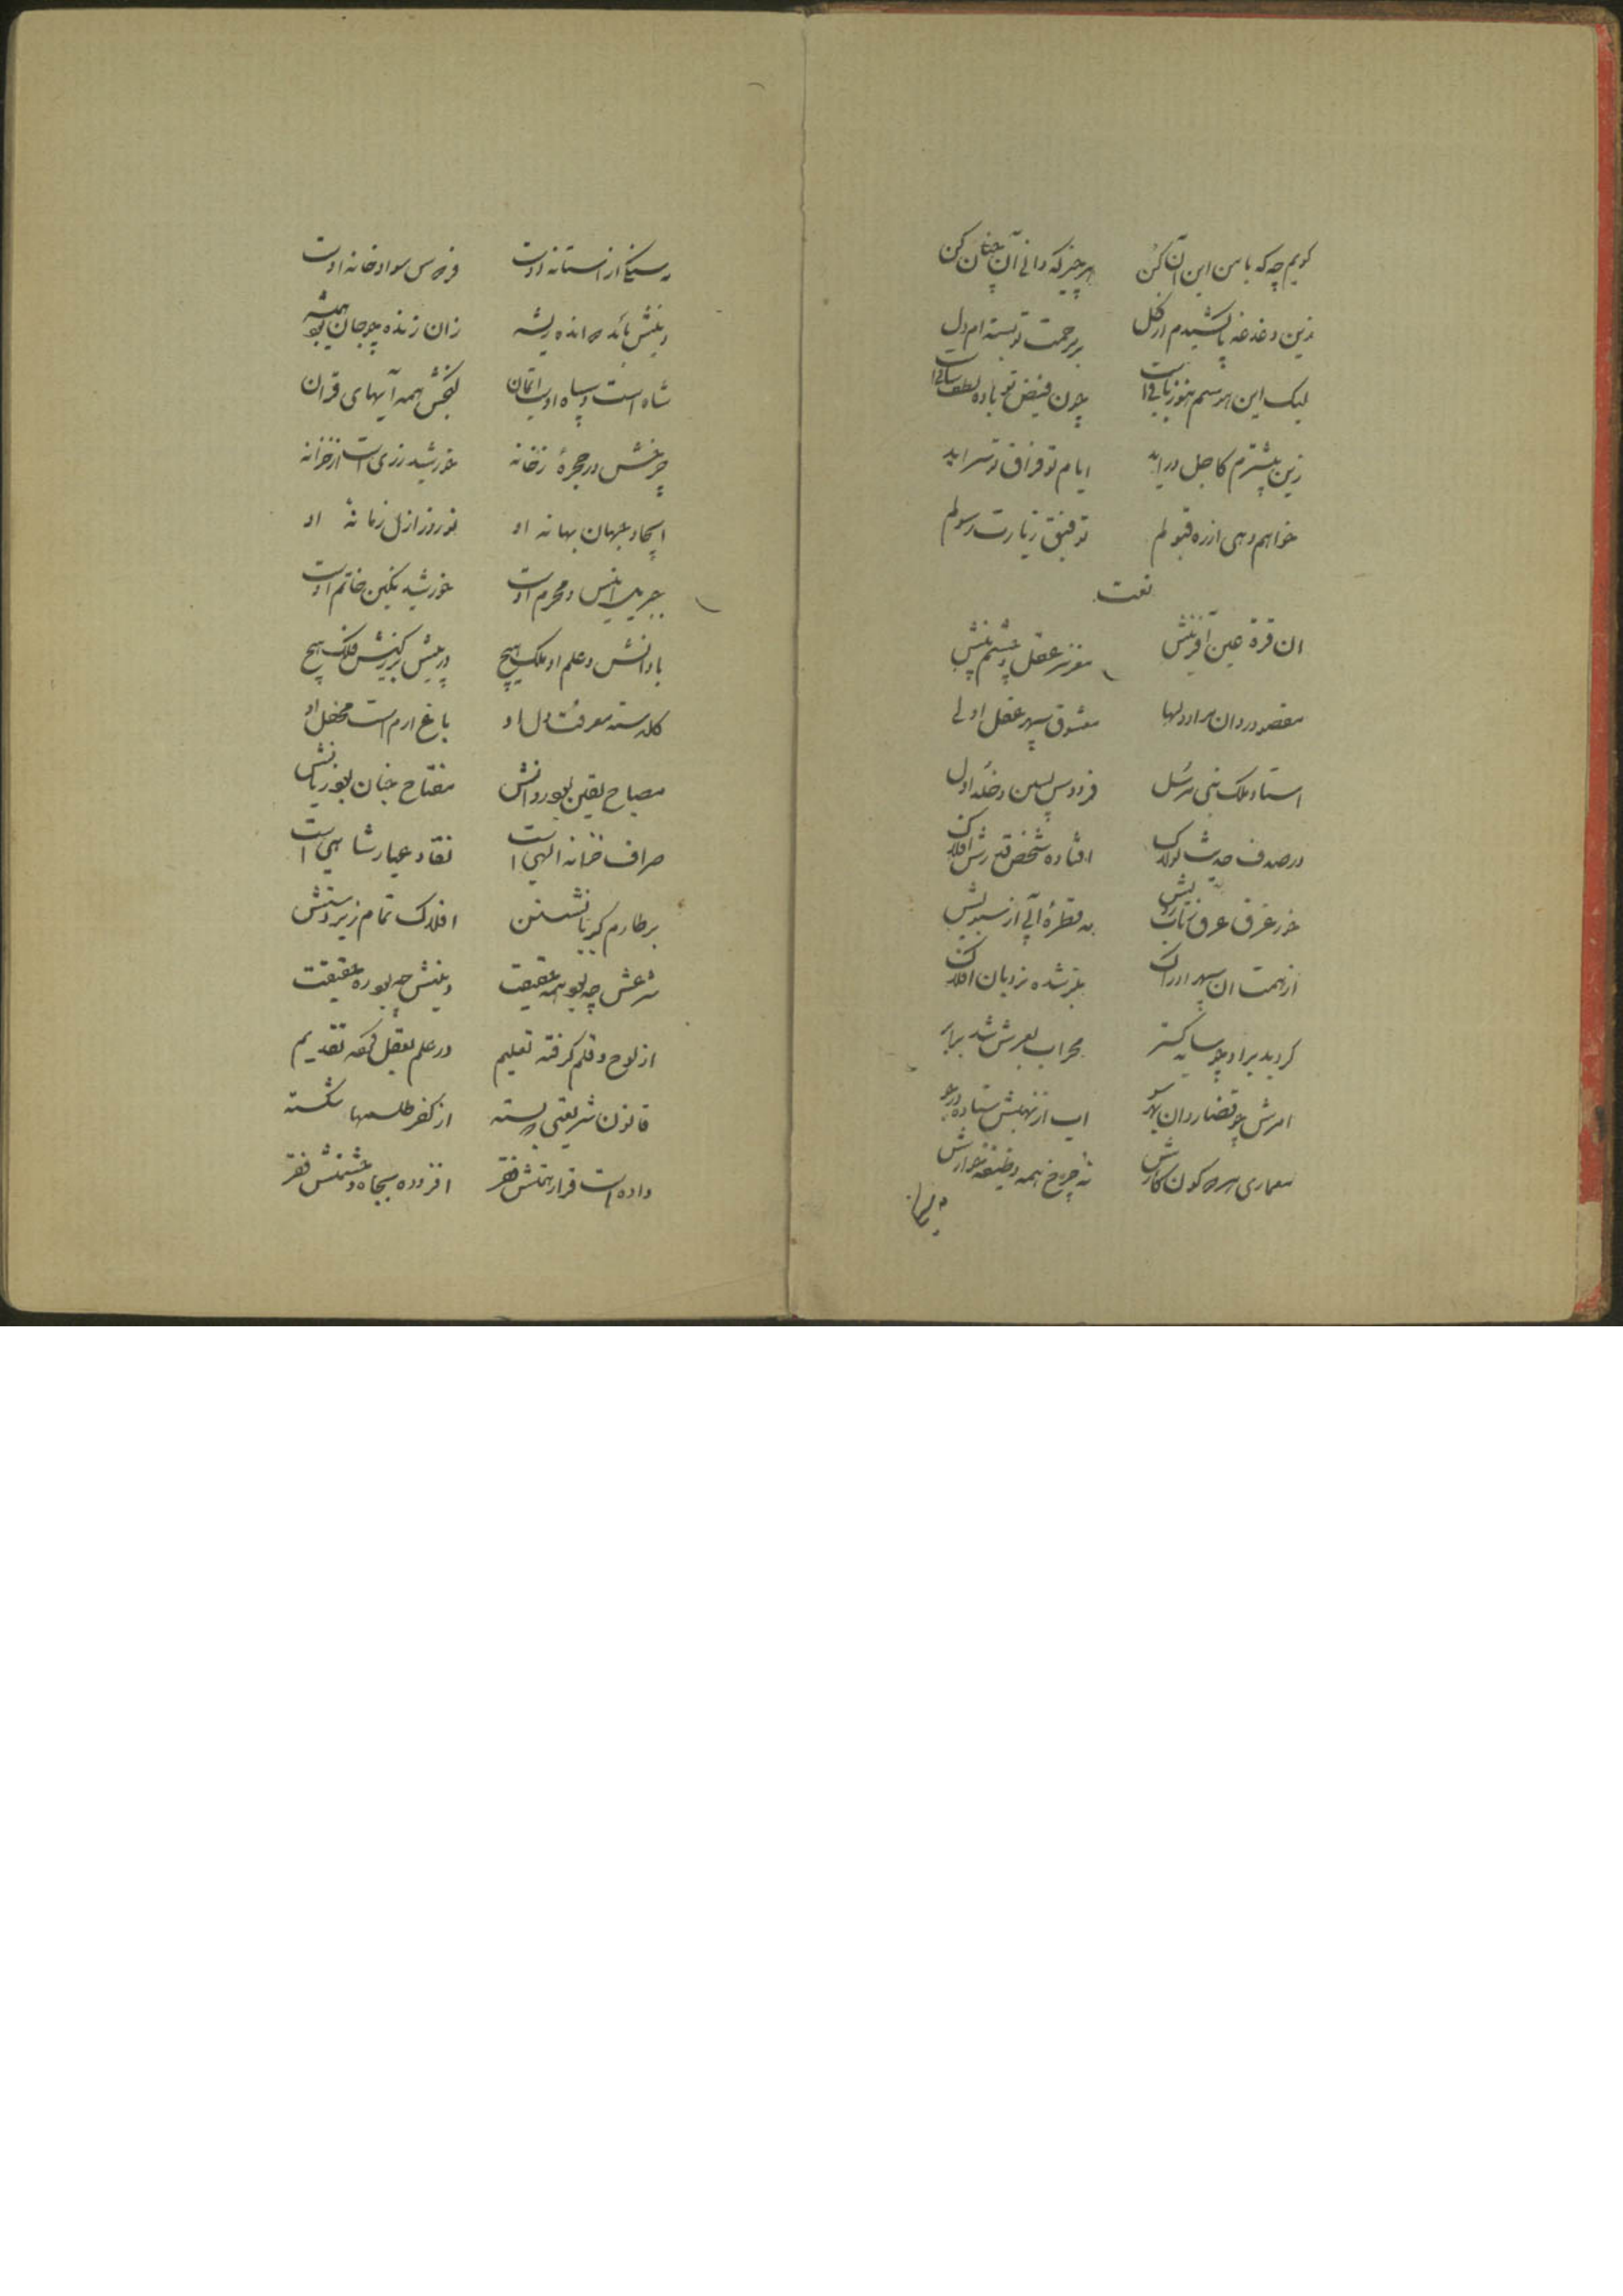 کویم چه که با من این آن کن هر چیز که دانی آن چنان کن
زین دغدغه پا کشیدم از کل بر رحمت تو بسته ام دل
لیک این هوسم هنوز باقی است چون فیض تو باده لطف ساقی است
زین پیشترم کاجل در اید ایام تو فراق تو سر اید
خواهم دهی از ره قبولم توفیق زیارت رسولم
نعت
ان قرة عین آفرینش مغز سر عقل و چشم بینش
مقصود روان مراد دلها معشوق سپهر عقل اولی
استاد ملک نبی مرسل فردوس پسین و خلد اول
در صدف حدیث لولاک افتاده شخص قدرش افلاک
خور غرق عرق ز تاب رویش نه قطرهٔ آبی از سبویش
از همت ان سپهر ادراک نردبان افلاک
کردید برا و چو سایه کستر محراب بعرش شد برابر
امرش چو قضا روان بهر سو اب از نهیبش ستاده در جو
معماری کون کارش نه چرخ همه وظیفه خوارش
سنکی از استانه اوست سواد خانه اوست
دینش زان زنده چو جان بود همیشه
شاه است و سپاه اوست کنجش همه آیهای قران
چرخش در حجرهٔ ز خانه خورشید زری است از خزانه
ایجاد جهان بهانه او نوروز ازل زمانه او
جبریل انیس و محرم اوست خورشید نکین خاتم اوست
با دانش و علم او ملک هیچ در پیش فلک هیچ
کلدسته معرفت دل او باغ ارم است محفل او
مصباح یقین بود روانش مفتاح جنان بود زبانش
صراف خزانه الهی است نقاد عیار شاهی است
بر طارم کبریا افلاک تمام زیر دستش
شرعش چه بود همه حقیقت دینش چه بود ره حقیقت
از لوح و قلم کرفته تعلیم در علم بعقل کفته تقدیم
قانون شریعتی به بسته از کفر طلسمها شکسته
داده است قرار فقر افزوده بجاه و حشمتش فقر